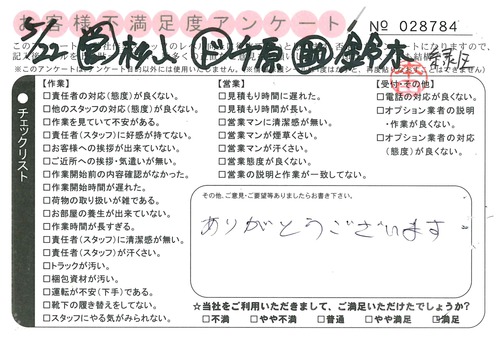 お客様不満足度アンケート
No 028784
5/22 営 松山 ド 千原 助 鈴木 緑区
チェックリスト
【作業】
□責任者の対応(態度)が良くない。
□他のスタッフの対応(態度)が良くない。
□作業を見ていて不安がある。
□責任者(スタッフ)に好感が持てない。
□お客様への挨拶が出来ていない。
□ご近所への挨拶・気遣いが無い。
□作業開始前の内容確認がなかった。
□作業開始時間が遅れた。
□荷物の取り扱いが雑である。
□お部屋の養生が出来ていない。
□作業時間が長すぎる。
□責任者(スタッフ)に清潔感が無い。
□責任者(スタッフ)が汗くさい。
□トラックが汚い。
□梱包資材が汚い。
□運転が不安(下手)である。
□靴下の履き替えをしてない。
□スタッフにやる気がみられない。
【営業】
□見積もり時間に遅れた。
□見積もり時間が長い。
□営業マンに清潔感が無い。
□営業マンが煙草くさい。
□営業マンが汗くさい。
□営業態度が良くない。
□営業の説明と作業が一致してない。
【受付・その他】
□電話の対応が良くない。
□オプション業者の説明
・作業が良くない。
□オプション業者の対応
(態度)が良くない。
その他、ご意見・ご要望等ありましたらお書き下さい。
ありがとうございます
☆当社をご利用いただきまして、ご満足いただけたでしょうか?
□不満 □やや不満 □普通 □やや満足 □満足